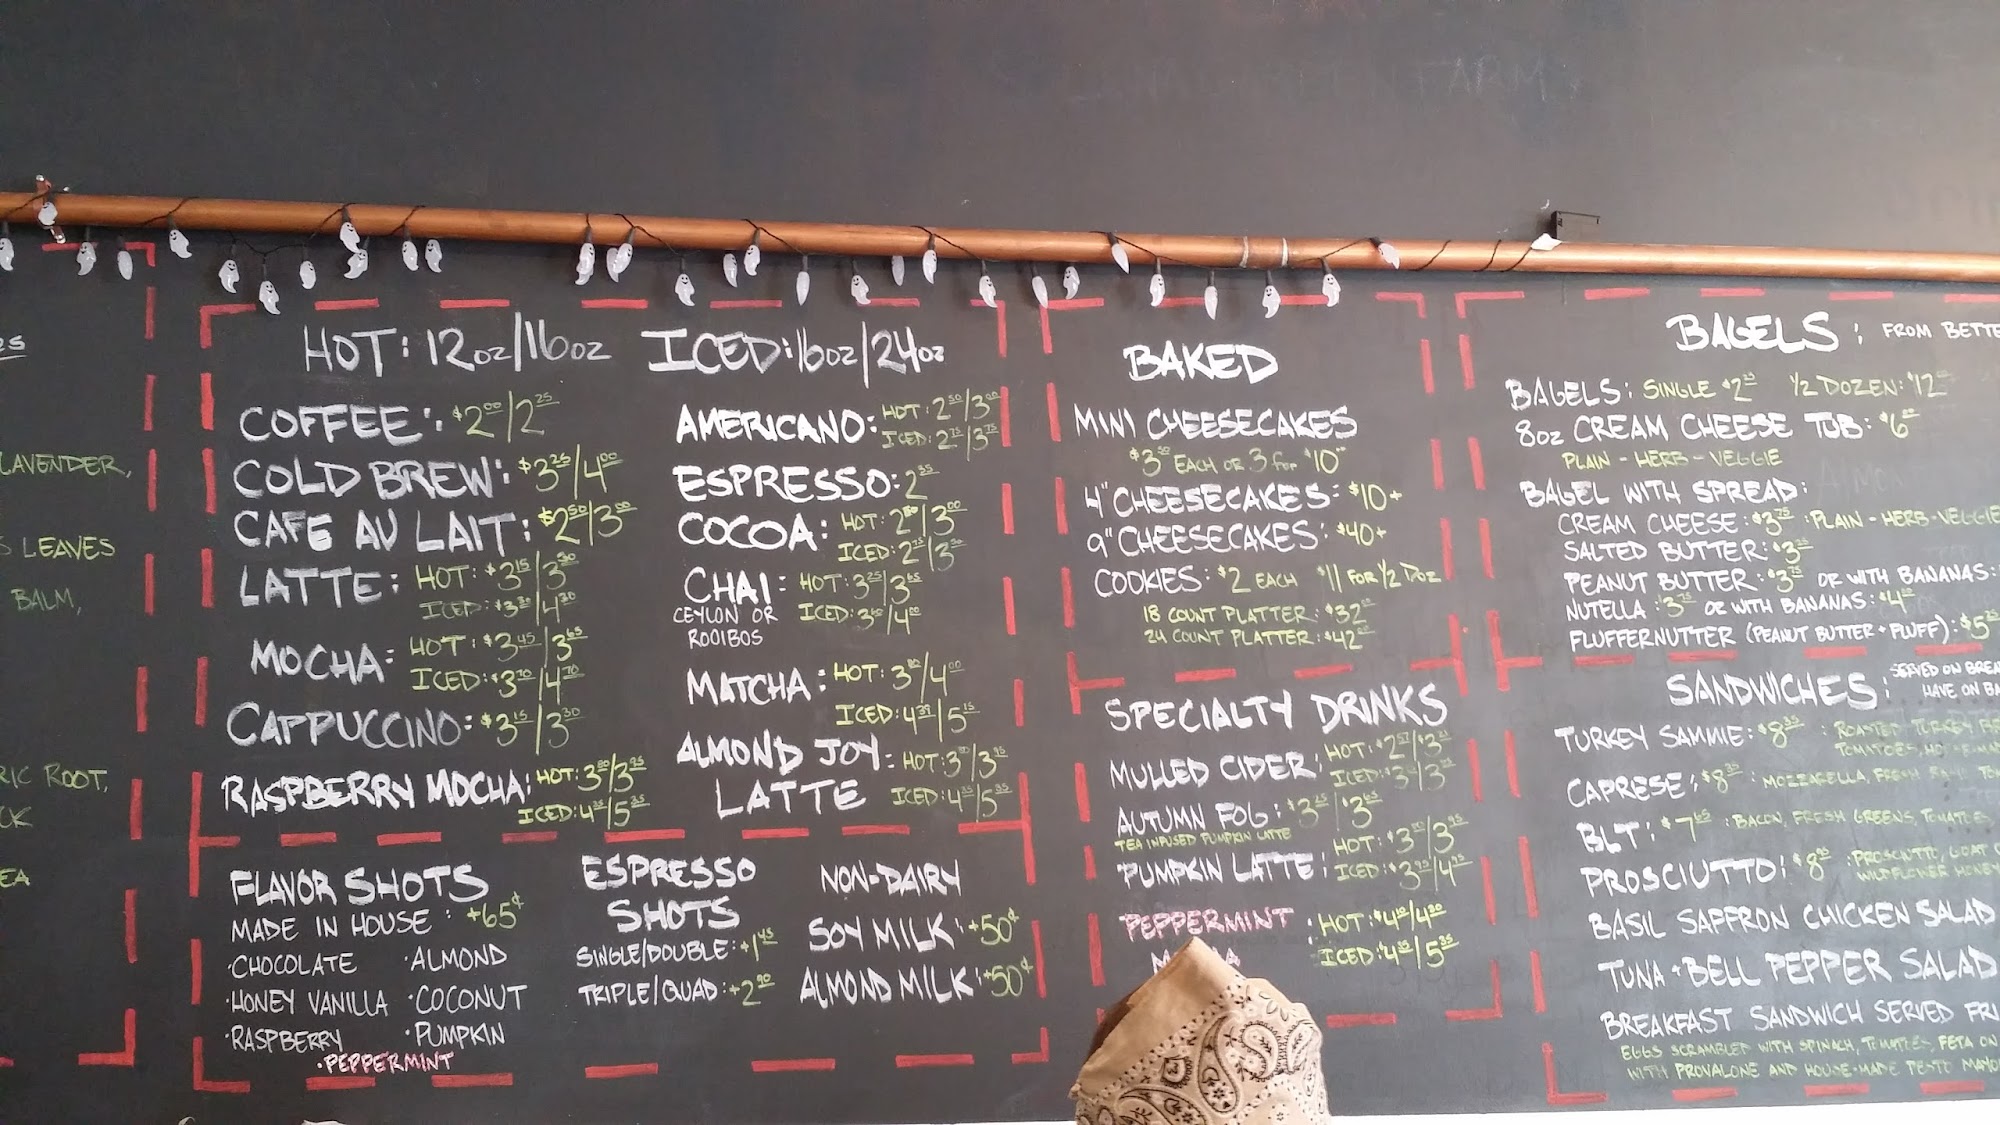 LAVENDER,
LEAVES
BALM,
ROOT,
HOT: 12oz/16oz ICED: 16oz/24oz
COFFEE: $2.00/2.25
COLD BREW: $3.25/4.00
CAFE AU LAIT: $2.50/3.00
LATTE: HOT: $3.15/3.30
ICED: $3.30/4.30
MOCHA: HOT: $3.45/3.65
ICED: $3.70/4.70
CAPPUCCINO: $3.15/3.30
RASPBERRY MOCHA: HOT: 3.80/3.95
ICED: 4.35/5.35
AMERICANO: HOT: 2.50/3.00
ICED: 2.75/3.75
ESPRESSO: 2.35
COCOA: HOT: 2.50/3.00
ICED: 2.75/3.50
CHAI: HOT: 3.25/3.65
CEYLON OR ICED: 3.60/4.00
ROOIBOS
MATCHA: HOT: 3.80/4.00
ICED: 4.39/5.15
ALMOND JOY HOT: 3.80/3.95
LATTE: ICED: 4.35/5.35
FLAVOR SHOTS
MADE IN HOUSE: +65¢
·CHOCOLATE ·ALMOND
·HONEY VANILLA ·COCONUT
·RASPBERRY ·PUMPKIN
·PEPPERMINT
ESPRESSO
SHOTS
SINGLE/DOUBLE: +1.45
TRIPLE/QUAD: +2.90
NON-DAIRY
SOY MILK: +50¢
ALMOND MILK: +50¢
BAKED
MINI CHEESECAKES
$3.50 EACH OR 3 for $10
4" CHEESECAKES: $10+
9" CHEESECAKES: $40+
COOKIES: $2 EACH $11 FOR 1/2 DOZ
18 COUNT PLATTER: $32
24 COUNT PLATTER: $42
SPECIALTY DRINKS
MULLED CIDER: HOT:
ICED:
AUTUMN FOG: $3.25/$3.65
TEA INFUSED PUMPKIN LATTE
PUMPKIN LATTE: HOT: $3.80/3.95
ICED: $3.95/4.75
PEPPERMINT: HOT: $4.10/4.20
ICED: $4.35/5.35
BAGELS: FROM BETTE
BAGELS: SINGLE $2.25 1/2 DOZEN: $12
8oz CREAM CHEESE TUB: $6
PLAIN - HERB - VEGGIE
BAGEL WITH SPREAD:
CREAM CHEESE: $3.75: PLAIN - HERB - VEGGIE
SALTED BUTTER: $3.25
PEANUT BUTTER: $3.75 OR WITH BANANAS:
NUTELLA: $3.75 OR WITH BANANAS: $4
FLUFFERNUTTER (PEANUT BUTTER + FLUFF): $5.25
SANDWICHES: SERVED ON BREA
HAVE ON BA
TURKEY SAMMIE: $8.35: ROASTED TURKEY
TOMATOES,
CAPRESE: $8: MOZZARELLA, FRESH
BLT: $7.65: BACON, FRESH GREENS, TOMATOES,
PROSCIUTTO: $8: PROSCIUTTO, GOAT
WILDFLOWER HONEY
BASIL SAFFRON CHICKEN SALAD
TUNA + BELL PEPPER SALAD
BREAKFAST SANDWICH SERVED FRI
EGGS SCRAMBLED WITH SPINACH, TOMATOES, FETA ON
WITH PROVALONE AND HOUSE-MADE PESTO MAYO